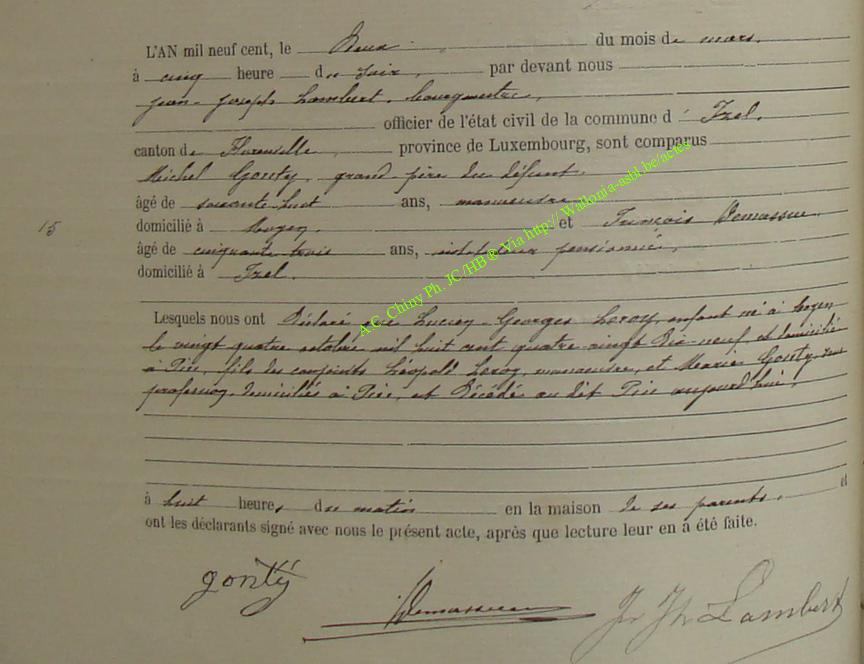 L'AN mil neuf cent, le Deux du mois de mars,
à cinq heure du soir, par devant nous
Jean-Joseph Lambert, bourgmestre,
officier de l'état civil de la commune d' Izel.
canton de Florenville province de Luxembourg, sont comparus
Michel Gonty, grand-père du défunt.
âgé de soixante huit ans, manoeuvre
domicilié à Moyen, et François Demasscue
15
âgé de cinquante trois ans, instituteur pensionné,
domicilié à Izel.
Lesquels nous ont Déclaré que Lucien-Georges Leroy, enfant né à Moyen
le vingt quatre octobre mil huit cent quatre-vingt dix-neuf, et domicilié
à Pin, fils des conjoints Léopold Leroy, manoeuvre, et Marie Gonty, sans
profession, domiciliés à Pin, est Décédé au dit Pin aujourd'hui,
à huit heures du matin en la maison de ses parents. et
ont les déclarants signé avec nous le présent acte, après que lecture leur en a été faite.
gonty
Jh Lambert
A.C. Chiny Ph. JC/HB ® Via http://Wallonia-asbl.be/actes